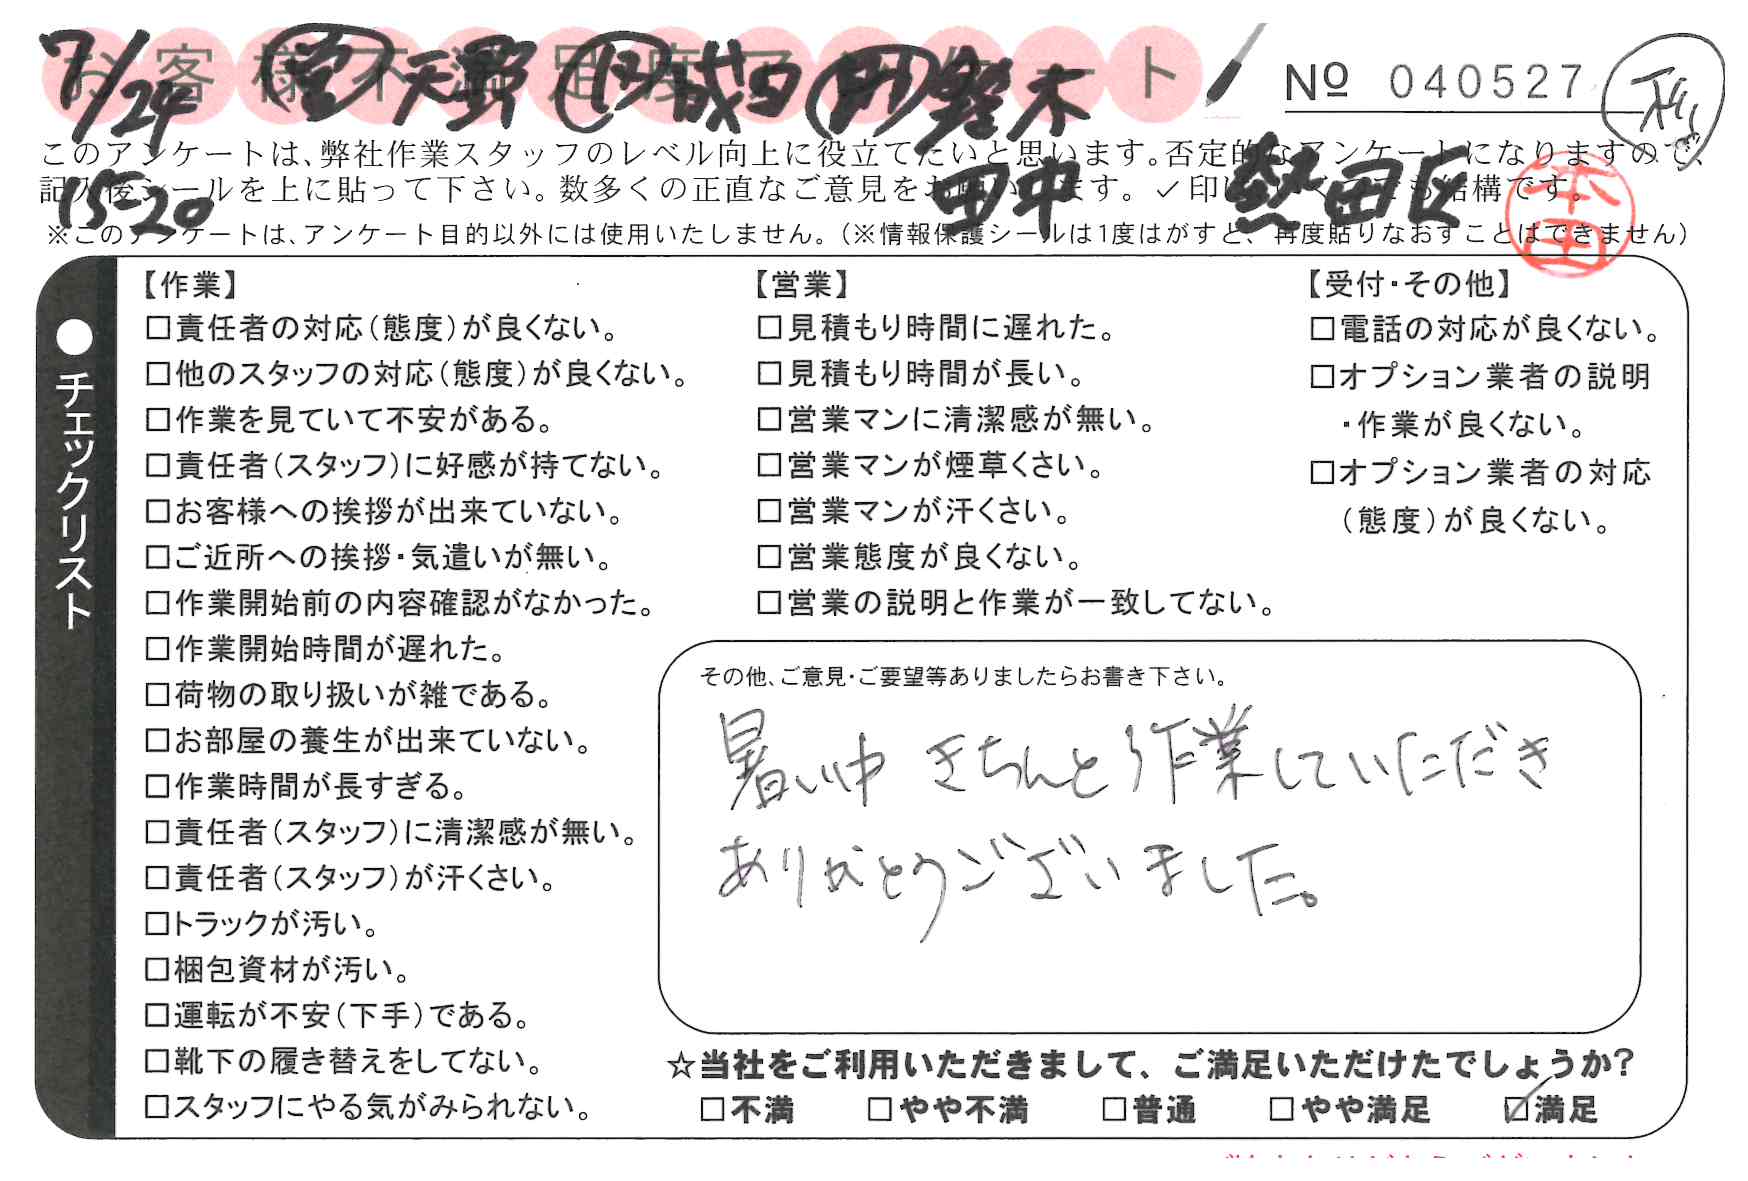 お客様不満足度アンケート
7/24 営 天野 成田 鈴木
№ 040527
このアンケートは、弊社作業スタッフのレベル向上に役立てたいと思います。否定的なアンケートになりますので、
記入後シールを上に貼って下さい。数多くの正直なご意見をお願いします。✓印はいくつでも結構です。
15-20 田中 熱田区 本田
※このアンケートは、アンケート目的以外には使用いたしません。(※情報保護シールは1度はがすと、再度貼りなおすことはできません)
●チェックリスト
【作業】
□責任者の対応(態度)が良くない。
□他のスタッフの対応(態度)が良くない。
□作業を見ていて不安がある。
□責任者(スタッフ)に好感が持てない。
□お客様への挨拶が出来ていない。
□ご近所への挨拶・気遣いが無い。
□作業開始前の内容確認がなかった。
□作業開始時間が遅れた。
□荷物の取り扱いが雑である。
□お部屋の養生が出来ていない。
□作業時間が長すぎる。
□責任者(スタッフ)に清潔感が無い。
□責任者(スタッフ)が汗くさい。
□トラックが汚い。
□梱包資材が汚い。
□運転が不安(下手)である。
□靴下の履き替えをしてない。
□スタッフにやる気がみられない。
【営業】
□見積もり時間に遅れた。
□見積もり時間が長い。
□営業マンに清潔感が無い。
□営業マンが煙草くさい。
□営業マンが汗くさい。
□営業態度が良くない。
□営業の説明と作業が一致してない。
【受付・その他】
□電話の対応が良くない。
□オプション業者の説明
・作業が良くない。
□オプション業者の対応
(態度)が良くない。
その他、ご意見・ご要望等ありましたらお書き下さい。
暑い中 きちんと作業していただき
ありがとうございました。
☆当社をご利用いただきまして、ご満足いただけたでしょうか?
□不満 □やや不満 □普通 □やや満足 ☑満足